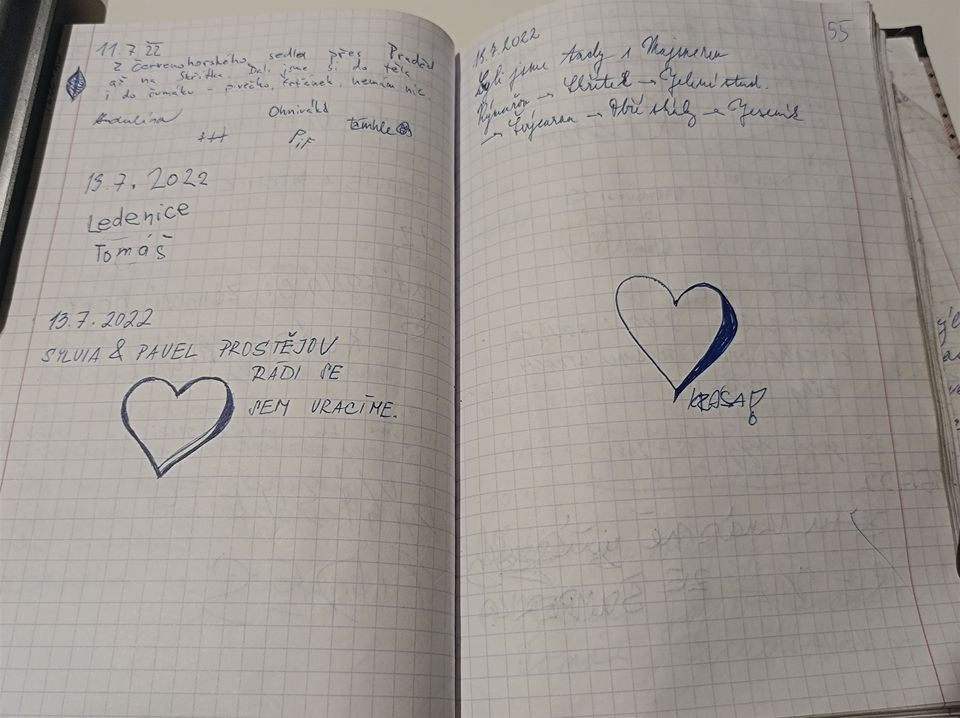 11.7 22
z červenohorského sedla přes Praděd
až na Skřítka. Dali jsme si do těla
i do čumáku - pivečko, nemám nic.
Ohniváka
Andulína
+++
Pif
Támhle
13.7.2022
Ledenice
Tomáš
13.7.2022
SYLVIA & PAVEL PROSTĚJOV
RADI SE
SEM VRACÍME.
55
13.7.2022
Byli jsme Andy s
Rýmařov → Skřítek → Jelení stud.
→ Švýcárna → Obří skály → Jeseník
KRÁSA!